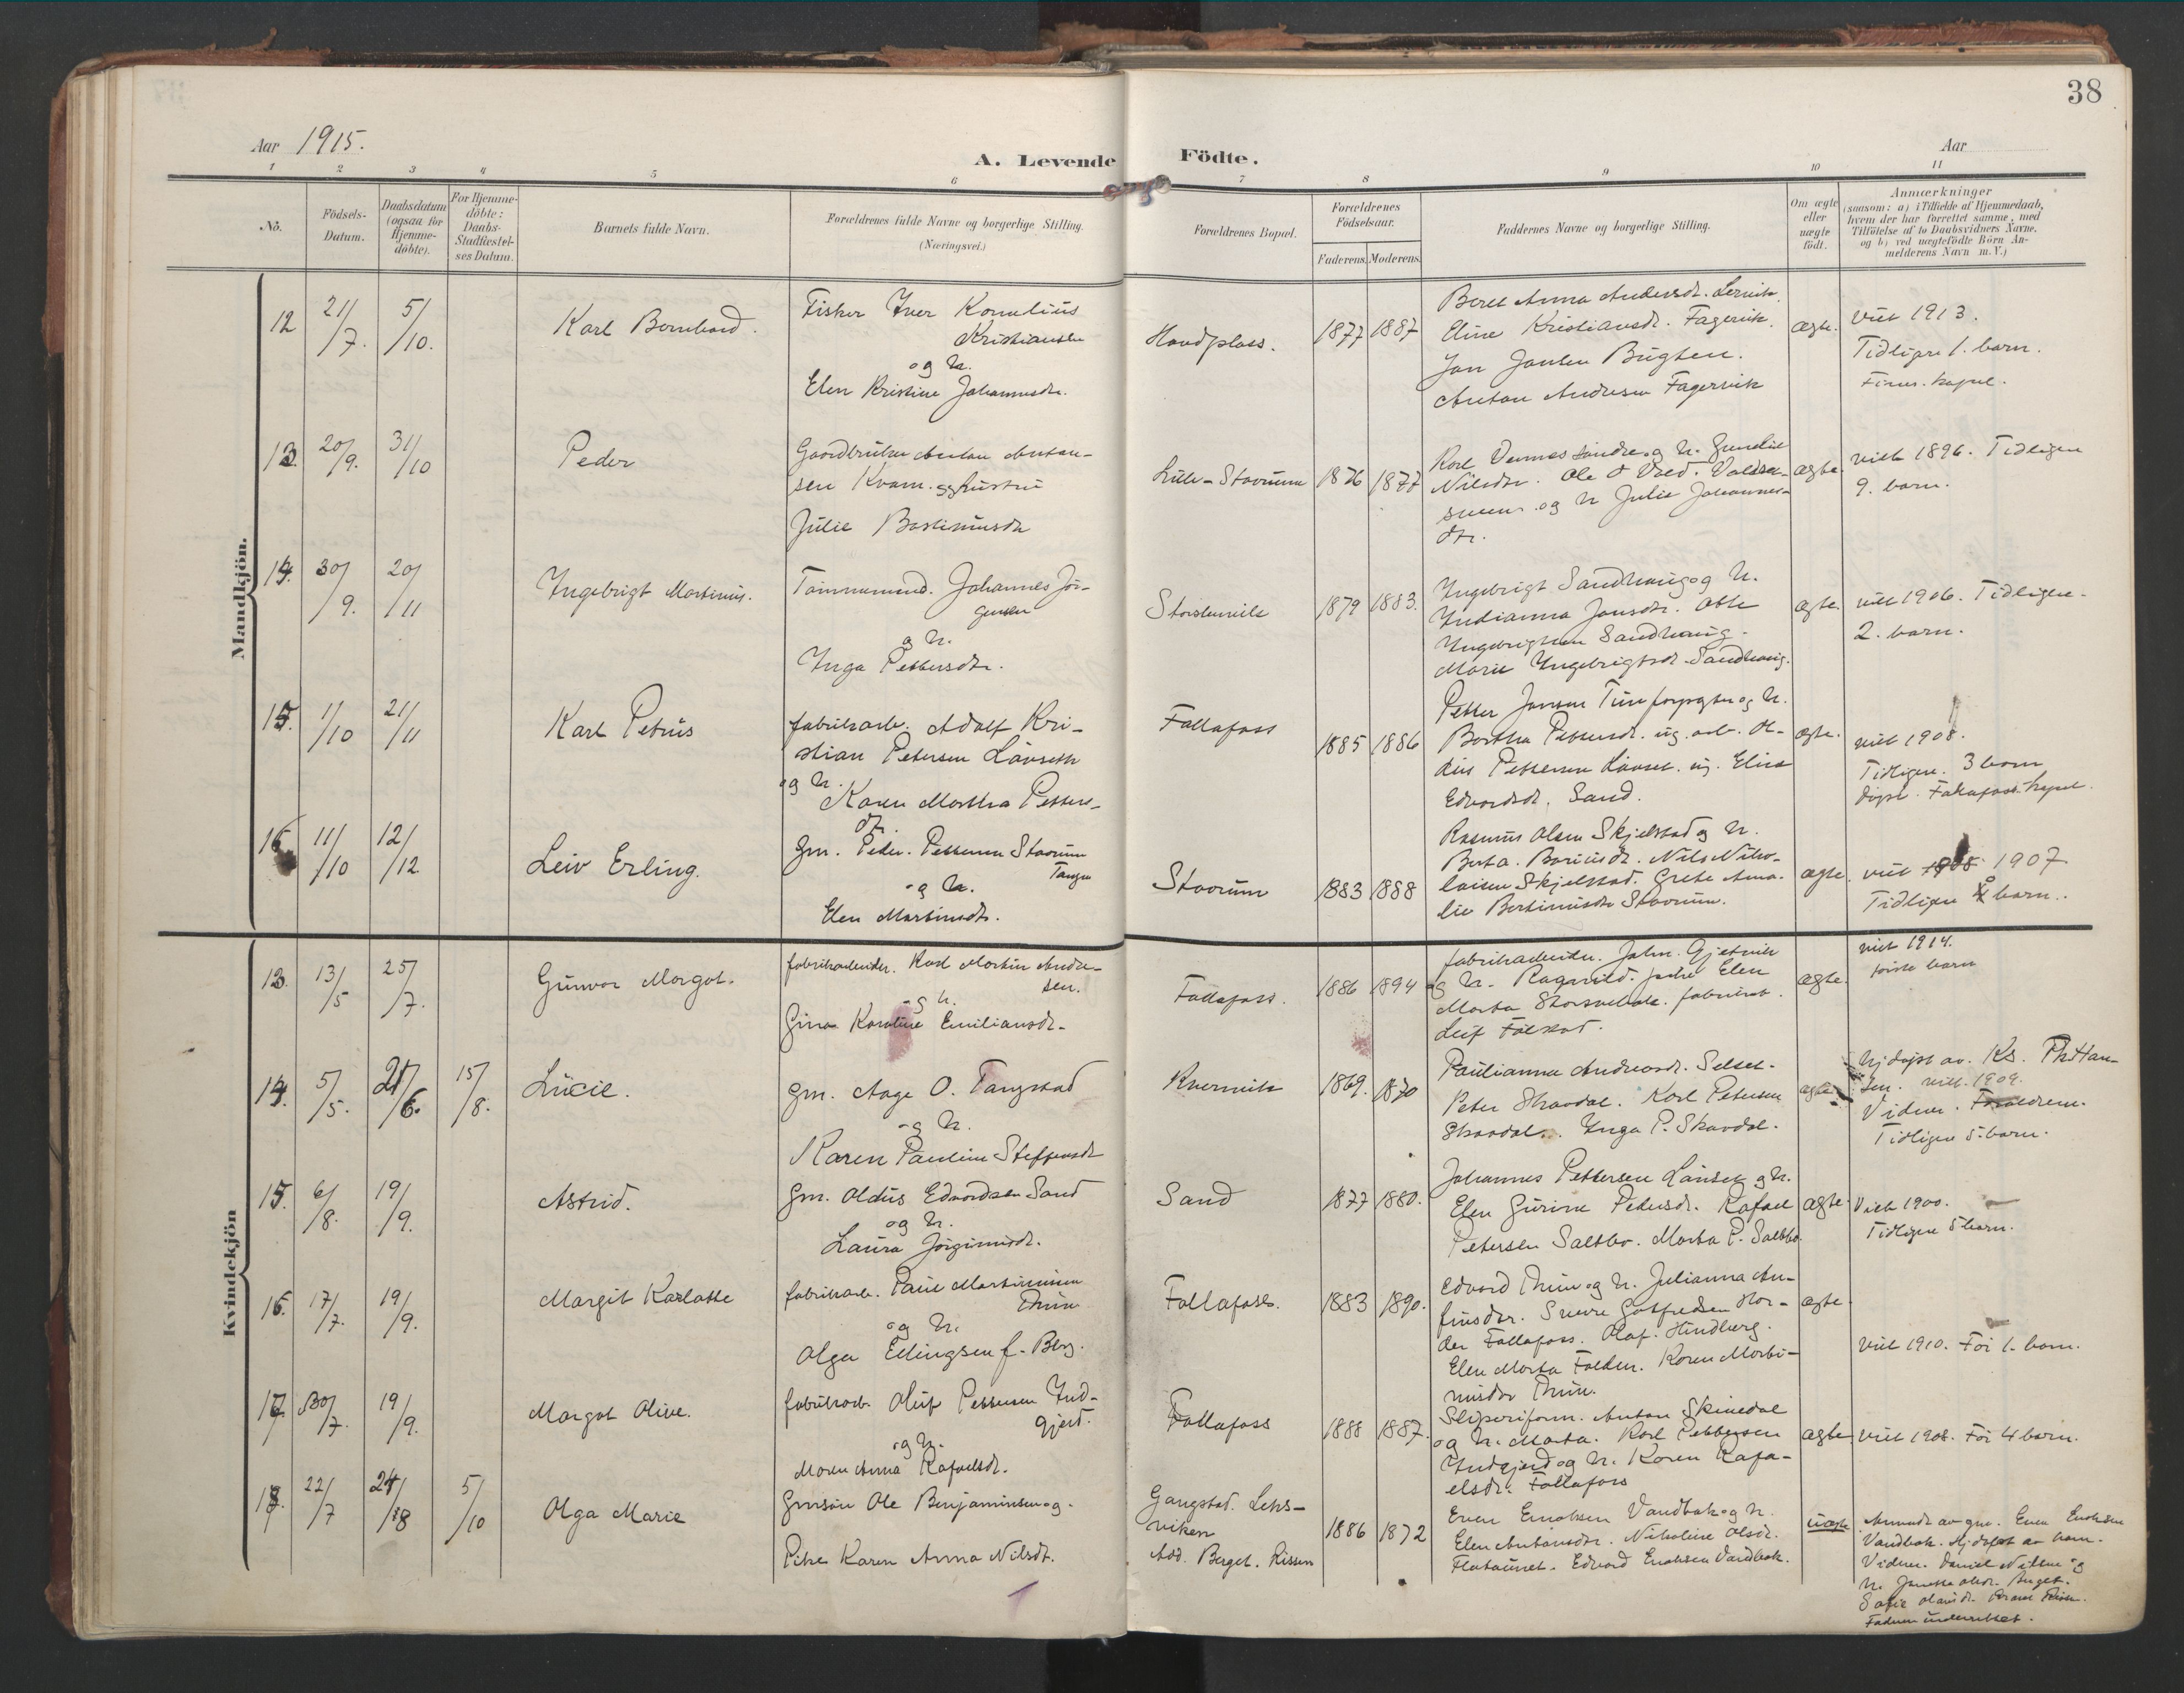 38
Aar 1915.
A. Levende Födte.
Aar
1 2 3 4 5 6 7 8 9 10 11
No.
Födsels-Datum.
Daabsdatum (ogsaa for Hjemme-döbte).
For Hjemme-döbte: Daabs-Stadfæstel-ses Datum.
Barnets fulde Navn.
Forældrenes fulde Navne og borgerlige Stilling. (Næringsvei.)
Forældrenes Bopæl.
Forældrenes Födselsaar.
Faderens. Moderens.
Faddernes Navne og borgerlige Stilling.
Om ægte eller uægte født.
Anmærkninger
(saasom: a) i Tilfælde af Hjemmedaab,
hvem der har forrettet samme, med
Tilföielse af to Daabsvidners Navne.
og b) ved uægtefödte Börn An-
melderens Navn m. V.)
Mandkjön.
12 21/7. 5/10. Karl Bernhard.
Fisker Iver Kornelius
Kristiansen
og h.
Elen Kristine Johannesdtr.
Havdplass. 1877 1887
Beret Anna Andersdt. Lervik.
Eline Kristiansdt. Fagervik.
Jon Jonsen Bugten.
Anton Andresen Fagervik
ægte.
viet 1913.
Tidligere 1. barn.
13. 20/9. 31/10 Peder
Gaardbruker Anton Anton-
sen Kvam. og hustru
Julie Bastinusdt
Lille-Stavrum 1876 1877
Nilsdtr. Ole
og h Julie Johannes-
dtr.
ægte.
viet 1896. Tidligere
9. barn.
14. 30/9. 20/11 Ingebrigt Martinus.
Tømmermand. Johannes Jör-
gensen
og h.
Inga Pettersdtr.
1879 1883.
Ingebrigt Sandhaug og h.
Indianna Jonsdtr. Otte
Ingebrigtsen Sandhaug.
Marie Ingebrigtsdt. Sandhaug.
ægte.
viet 1906. Tidligere
2. barn.
15. 11/10 21/11 Karl Petrus
fabrikarb. Adolf Kri-
stian Petersen Länseth
og h.
Karen Martha Petters-
dt.
Follafoss 1885 1886
Petter Jensen og h.
Bertha Pettersdt. ug. arb. Ol-
dus Pettersen Länset. ug. Elisa
Edvardsdt. Sand.
ægte.
viet 1908.
Tidligere 3 barn
döpt. Follafoss kapel.
16 11/10 12/12 Leiv Erling.
Gm. Peder. Pettersen Stavrum
og h.
Elen Martinusdt.
Stavrum 1883 1888
Rasmus Olsen Skjelstad og h.
Berta. Nils Niko-
laisen Skjelstad. Grete Ama-
lie Bertinusdtr Stavrum.
ægte.
viet 1908 1907
Tidligere 4 barn.
Kvindekjön
13. 13/5 25/7. Gunvor Margot.
fabrikarbeider. Karl Martin Andre-
sen.
og h.
Gina Karoline Emiliansdt.
Follafoss. 1886 1894
fabrikarbeider. John. Gjetvik
og h. Ragnvild. pike Elen
Marta
Leif
ægte.
viet 1914.
første barn
14. 5/5. 21/6. 15/8. Lucie.
Gm. Aage O. Tangstad
og h.
Karen Pauline Steffensdt
Kvernvik 1869. 1870
Paulianna Andreasdt. Selset.
Peter Skavdal. Karl Petersen
Skavdal. Inga P. Skavdal.
ægte
Hj.döpt av. Ks. Ph Han-
sen. viet 1909.
Vidner. Forældrene.
Tidligere 5. barn.
15. 6/8. 19/9. Astrid.
Gm. Oldus Edvardsen Sand
og h.
Laura Jörginusdt.
Sand 1877 1880.
Johannes Pettersen Länset og h.
Elen Gurine Pedersdt. Rafael
Petersen Saltbo. Marta P. Saltbo
ægte.
Viet 1900.
Tidligere 5 barn.
16. 17/7. 19/9. Margit Karlotte
fabrikarb. Paul Martinusen
Thun
og h.
Olga Ellingsen f. Berg.
Follafoss. 1883 1890.
Edvard Thun og h. Julianna An-
finsdtr. Sverre Gotfredsen Hor-
der Follafoss. Olaf. Hindberg.
Elen Marta Folden. Karen Marti-
nusdtr Thun.
ægte.
viet 1910. För 1. barn.
17. 30/7. 19/9. Margot Olive.
fabrikarb. Oluf Pettersen Ind-
gjerd.
og h.
Maren Anna Rafaelsdt.
Follafoss 1888 1887.
Sliperiform. Anton Skinedal
og h. Marta. Karl Pettersen
Indgjerd og h. Karen Rafa-
elsdt. Follafoss
ægte.
viet 1908. För 4 barn.
18. 22/7 24/8 5/10 Olga Marie
Gmsön Ole Benjaminsen og
Pike Karen Anna Nilsdt.
Gangstad. Leks-
viken
Add. Berget. Rissen
1886 1872
Even Enoksen Vandbak og h.
Elen Antonsdtr. Nikoline Olsdt.
Flataunet. Edvard Enoksen Vandbak.
uægte
Anmeldt av gm. Even Enoksen
Vandbak. Hj.döpt av ham.
Vidner. Daniel Nilsen og
Faderen underrettet.
1